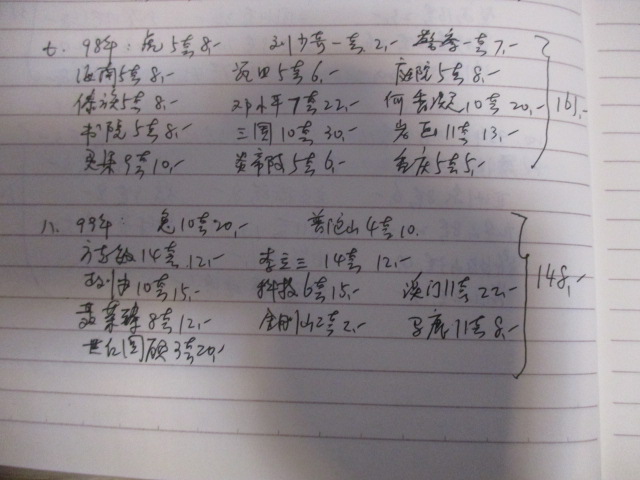 七. 98年: 虎 5套 8,- 刘少奇一套 2,- 一套 7,-
海南 5套 8,- 5套 6,- 庭院 5套 8,-
傣族 5套 8,- 邓小平 7套 22,- 何香凝 10套 20,-
书院 5套 8,- 三国 10套 30,- 岩画 11套 13,- 161,-
灵渠 9套 10,- 炎帝陵 5套 6,- 重庆 5套 5,-
八. 99年: 兔 10套 20,- 普陀山 4套 10.
方志敏 14套 12,- 李立三 14套 12,-
10套 15,- 科技 6套 15,- 澳门 11套 22,- 148,-
聂荣臻 8套 12,- 2套 2,- 马鹿 11套 8,-
3套 20,-